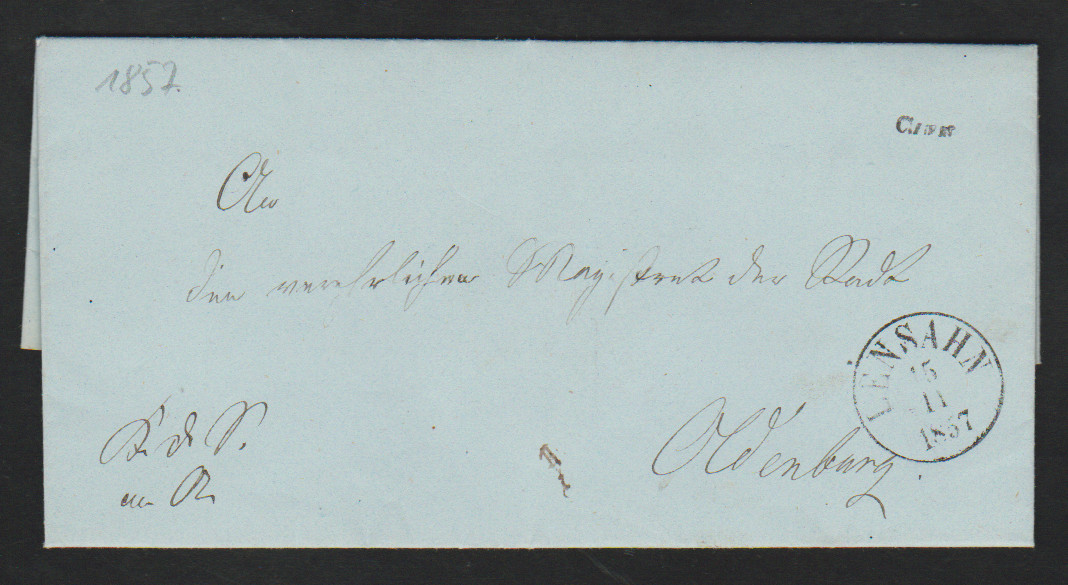 1857.
An
den verehrlichen Magistrat der Stadt
LENSAHN
15
11
1857
Oldenburg.